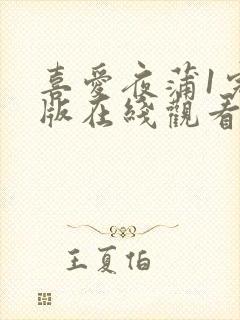 喜愛夜蒲1完
版在綫觀看
王夏伯